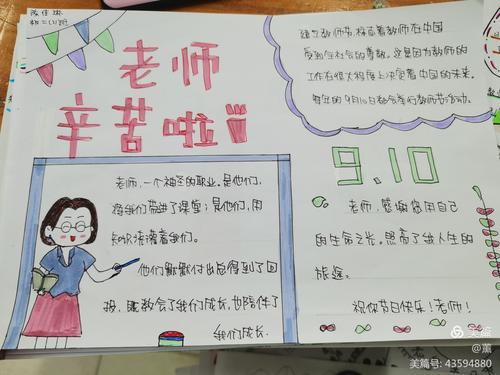 老师
辛苦啦
建立教师节,标志着教师在中国
受到全社会的尊敬。这是因为教师的
工作在很大程度上决定着中国的未来。
每年的9月10日都会举行教师节活动。
老师,一个神圣的职业。是他们,
将我们带进了课堂;是他们,用
知识浇灌着我们。
他们默默付出总得到了回
报,教会了我们成长,也陪伴了
我们成长.
9.10
老师,感谢您用自己
的生命之光,照亮了我人生的
旅途。
祝你节日快乐!老师!
美篇
@薰
美篇号: 43594880